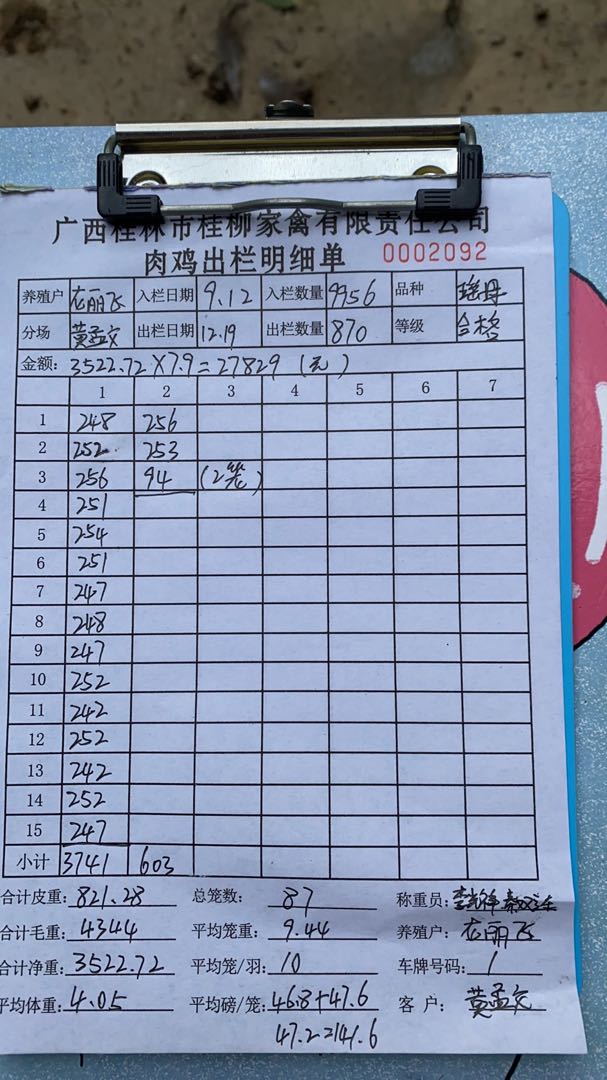 广西桂林市桂柳家禽有限责任公司
肉鸡出栏明细单 0002092
养殖户 入栏日期 9.12 入栏数量 9956 品种 瑶母
分场 黄孟文 出栏日期 12.19 出栏数量 870 等级 合格
金额: 3522.72×7.9=27829 (元)
1 2 3 4 5 6 7
1 248 256
2 252 253
3 256 94 (2笼)
4 251
5 254
6 251
7 247
8 248
9 247
10 252
11 242
12 252
13 242
14 252
15 247
小计 3741 603
合计皮重: 821.28 总笼数: 87 称重员:
合计毛重: 4344 平均笼重: 9.44 养殖户:
合计净重: 3522.72 平均笼/羽: 10 车牌号码: 1
平均体重: 4.05 平均磅/笼: 46.8+47.6 客户: 黄孟文
47.2=141.6